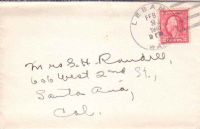 LEBA
FEB
Mrs. G. H. Randill,
606 West 2nd St.,
Santa Ana,
Cal.